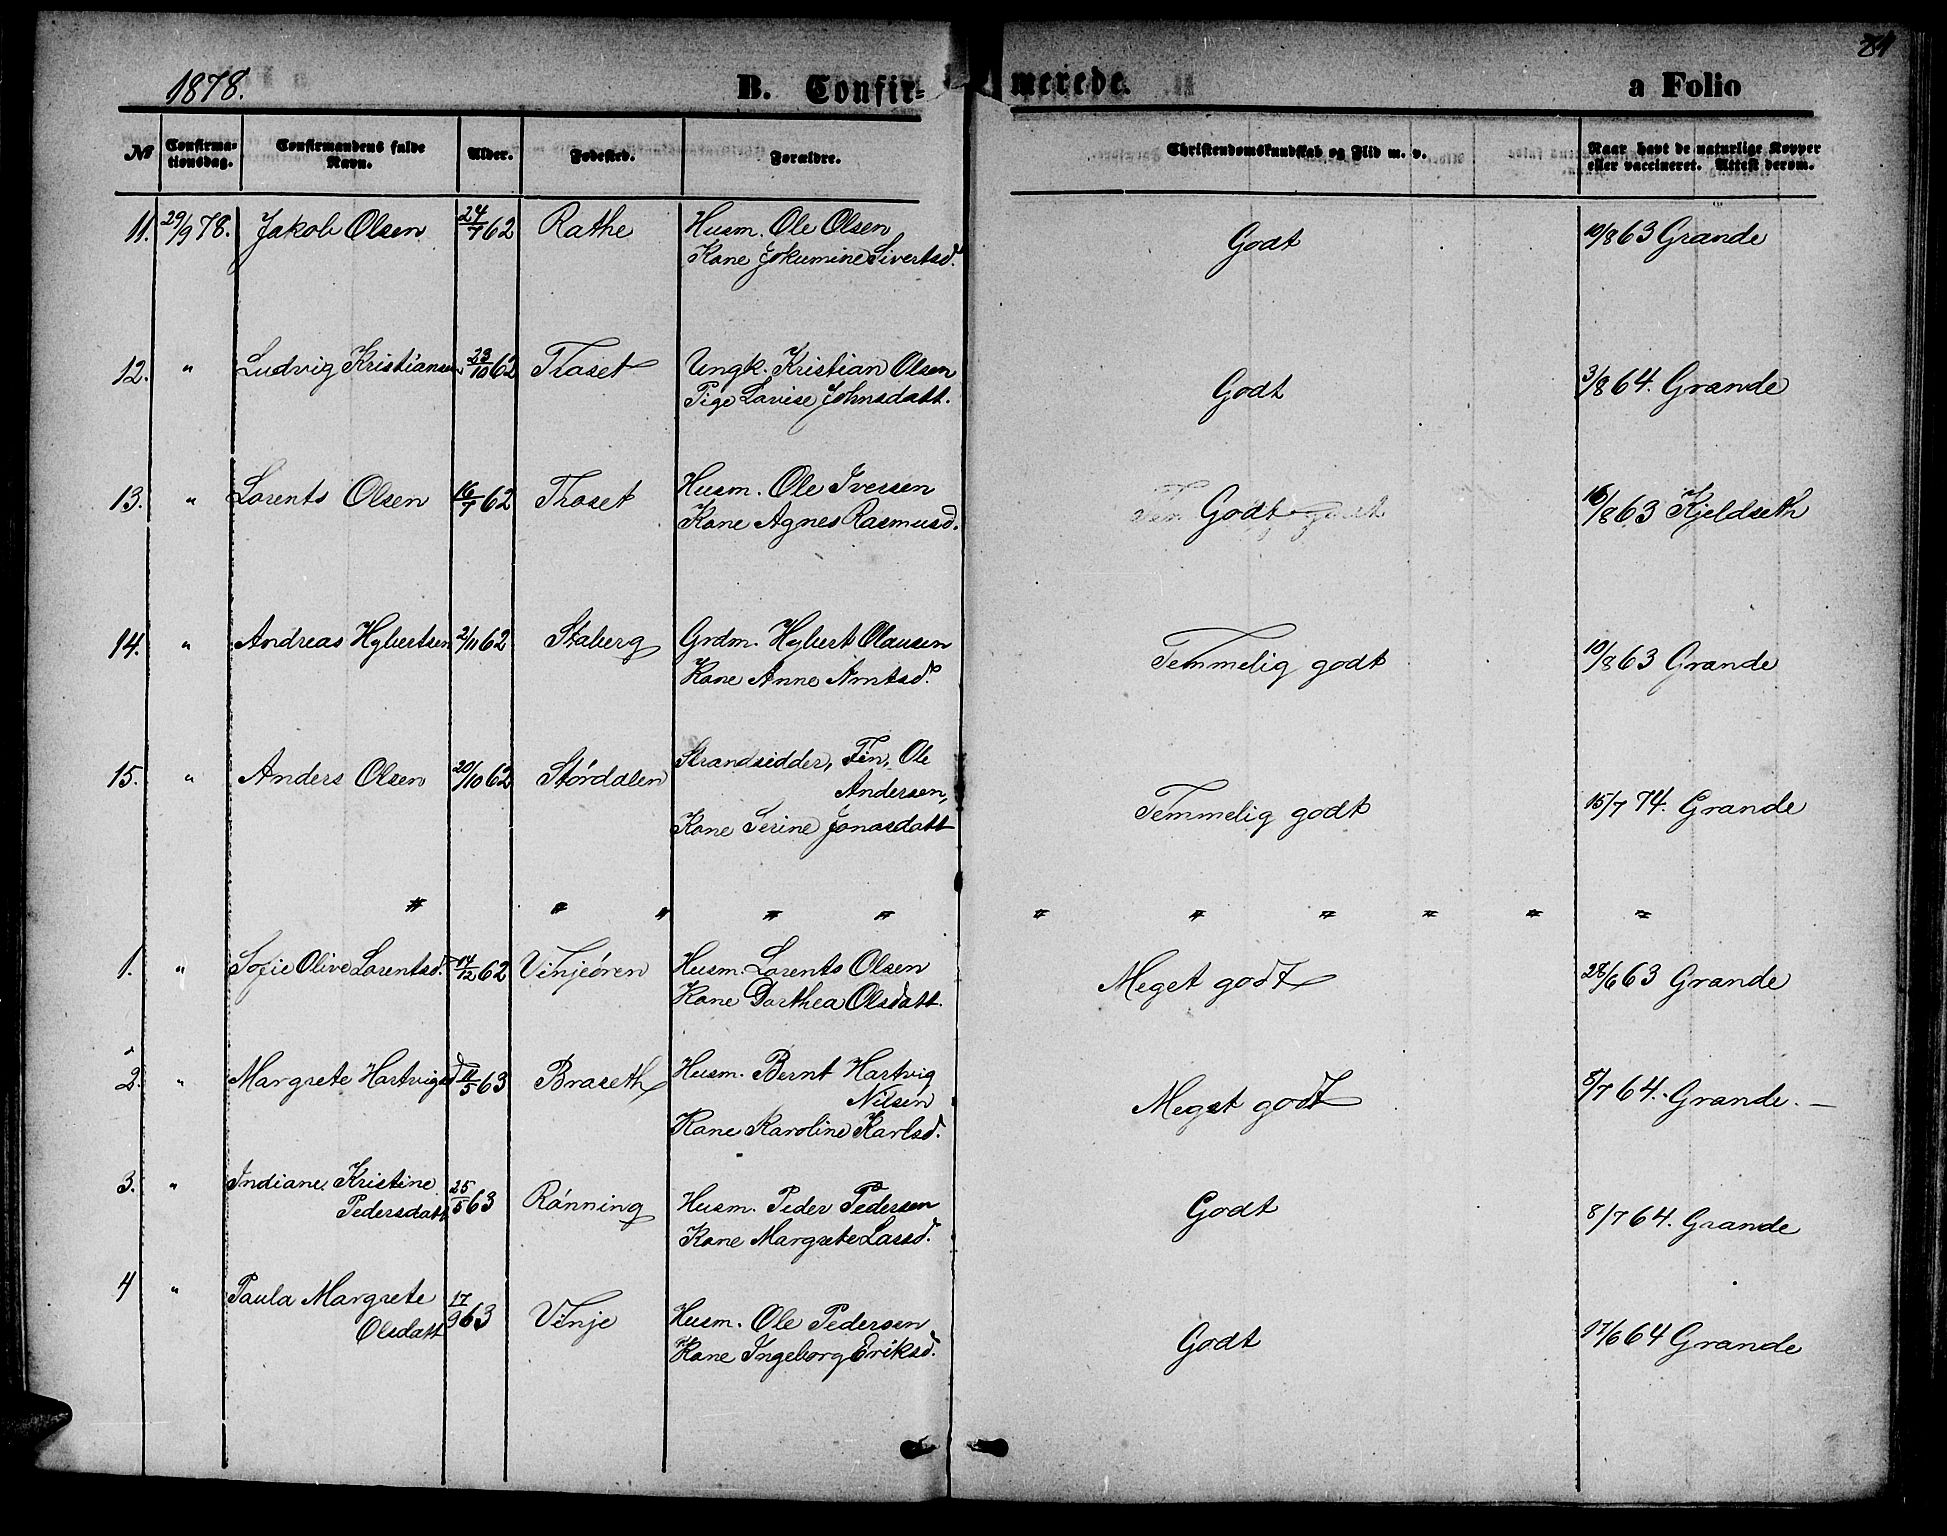 1878. B. Confirmerede. a Folio
№ Confirmationsdag. Confirmandens fulde Navn. Alder. Fødested. Forældre. Christendomskundskab og Flid m. v. Naar havt de naturlige Kopper eller vaccineret. Attest derom.
11. 29/9 78. Jakob Olsen 24/7 62 Rathe Husm. Ole Olsen Godt 19/8 63 Grande
Kone Jokumine Sivertsd.
12. " Ludvig Kristiansen 23/10 62 Traset Ungk. Kristian Olsen Godt 3/8 64. Grande
Pige Lovise Johnsdatt.
13. " Lorents Olsen 16/7 62 Traset Husm. Ole Iversen Godt 19/8 63 Kjeldseth
Kone Agnes Rasmusd.
14. " Andreas Hybertsen 2/11 62 Staberg Grdm. Hybert Olausen Temmelig godt 19/8 63 Grande
Kone Anne Arntsd.
15. " Anders Olsen 20/10 62 Stórdalen Strandsidder, Fin, Ole Temmelig godt 15/7 74. Grande
Andersen,
Kone Serine Jonasdatt
" " " " " " " " " " "
1. " Sofie Olive Lorentsd. 14/12 62 Vinjeóren Husm. Lorents Olsen Meget godt 28/6 63 Grande
Kone Dorthea Olsdatt.
2. " Margrete Hartvigsd 11/5 63 Braseth Husm. Bernt Hartvig Meget godt 8/7 64. Grande. —
Nilsen
Kone Karoline Karlsd.
3. " Indiane Kristine 25/5 63 Rónning Husm. Peder Pedersen Godt 8/7 64. Grande
Pedersdatt Kone Margrete Larsd.
4 " Paula Margrete 17/9 63 Vinje Husm. Ole Pedersen Godt 17/6 64 Grande
Olsdatt Kone Ingeborg Eriksd.